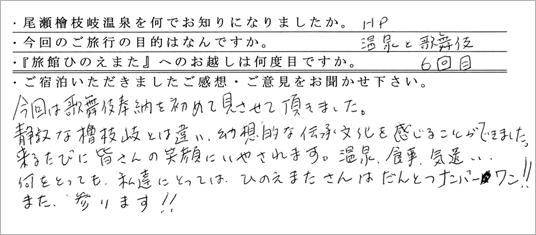 ・尾瀬檜枝岐温泉を何でお知りになりましたか。 HP
・今回のご旅行の目的はなんですか。 温泉と歌舞伎
・『旅館ひのえまた』へのお越しは何度目ですか。 6回目
・ご宿泊いただきましたご感想・ご意見をお聞かせ下さい。
今回は歌舞伎奉納を初めて見させて頂きました。
静寂な檜枝岐とは違い、幻想的な伝承文化を感じることができました。
来るたびに皆さんの笑顔にいやされます。温泉、食事、気遣い、
何をとっても、私達にとっては、ひのえまたさんはだんとつナンバーワン!!
また、参ります!!